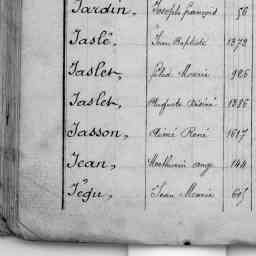 Jardin, Joseph François 56
Jaslé, Jean Baptiste 1379
Jaslet, Marie 926
Jaslet, Auguste Désiré 1386
Jasson, Aimé René 1617
Jean, Mathurin ange 144
Jégu, Jean Marie